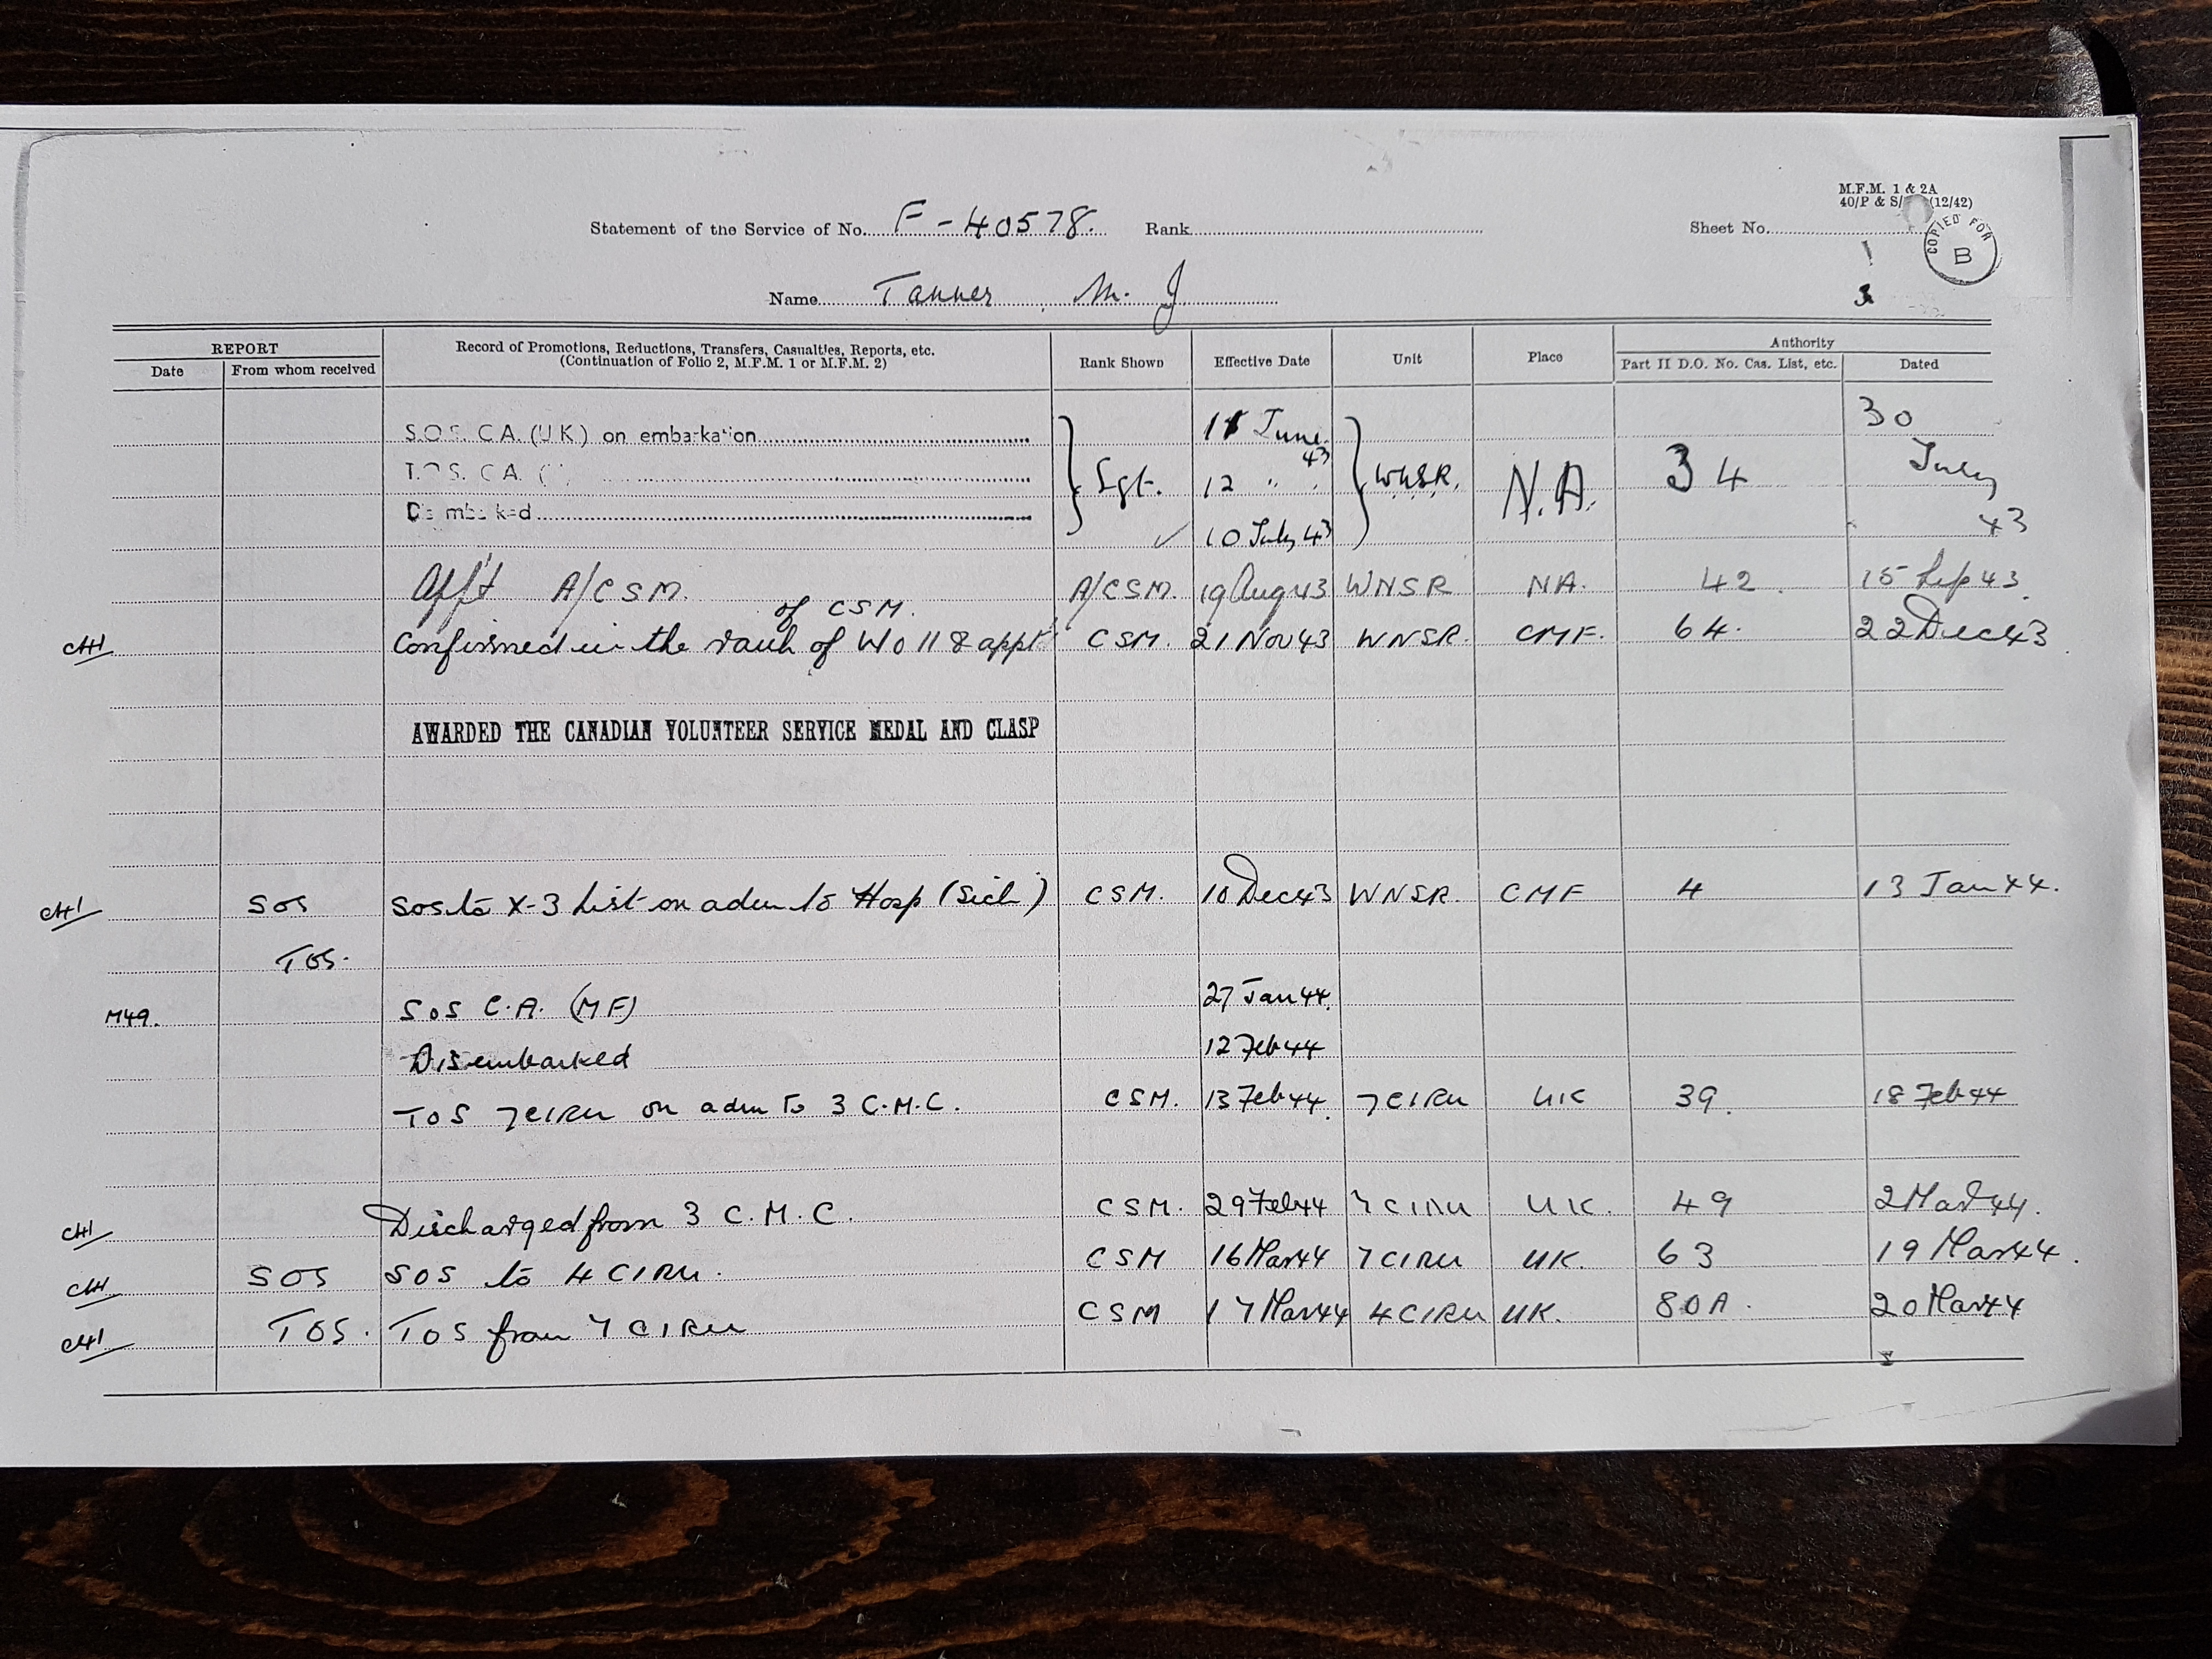 M.F.M. 1 & 2A
40/P & S/ (12/42)
COPIED FOR
B
Statement of the Service of No. F-40578. Rank Sheet No.
1
3
Name Tanner M. J
REPORT Record of Promotions, Reductions, Transfers, Casualties, Reports, etc. Rank Shown Effective Date Unit Place Authority
Date From whom received (Continuation of Folio 2, M.F.M. 1 or M.F.M. 2) Part II D.O. No. Cas. List, etc. Dated
S.O.S. C.A. (UK) on embarkation 11 June 43 30
T.O.S. C.A. ( Sgt. 12 " " WNSR. N.A. 34 July
Disembarked 10 July 43 43
App't A/CSM. A/CSM. 19 Aug 43 WNSR NA. 42 15 Sep 43
of CSM.
CH1 Confirmed in the rank of WO II & appt CSM. 21 Nov 43 WNSR. CMF. 64. 22 Dec 43
AWARDED THE CANADIAN VOLUNTEER SERVICE MEDAL AND CLASP
CH1 SOS SOS to X-3 List on adm to Hosp (Sick) CSM. 10 Dec 43 WNSR. CMF 4 13 Jan 44.
TOS.
M49. SOS C.A. (MF) 27 Jan 44.
Disembarked 12 Feb 44
TOS 7 CIRU on adm to 3 C.M.C. CSM. 13 Feb 44. 7 CIRU UK 39. 18 Feb 44
CH1 Discharged from 3 C.M.C. CSM. 29 Feb 44 7 CIRU UK. 49 2 Mar 44.
CH1 SOS SOS to 4 CIRU. CSM 16 Mar 44 7 CIRU UK. 63 19 Mar 44.
CH1 TOS. TOS from 7 CIRU CSM 17 Mar 44 4 CIRU UK. 80A. 20 Mar 44